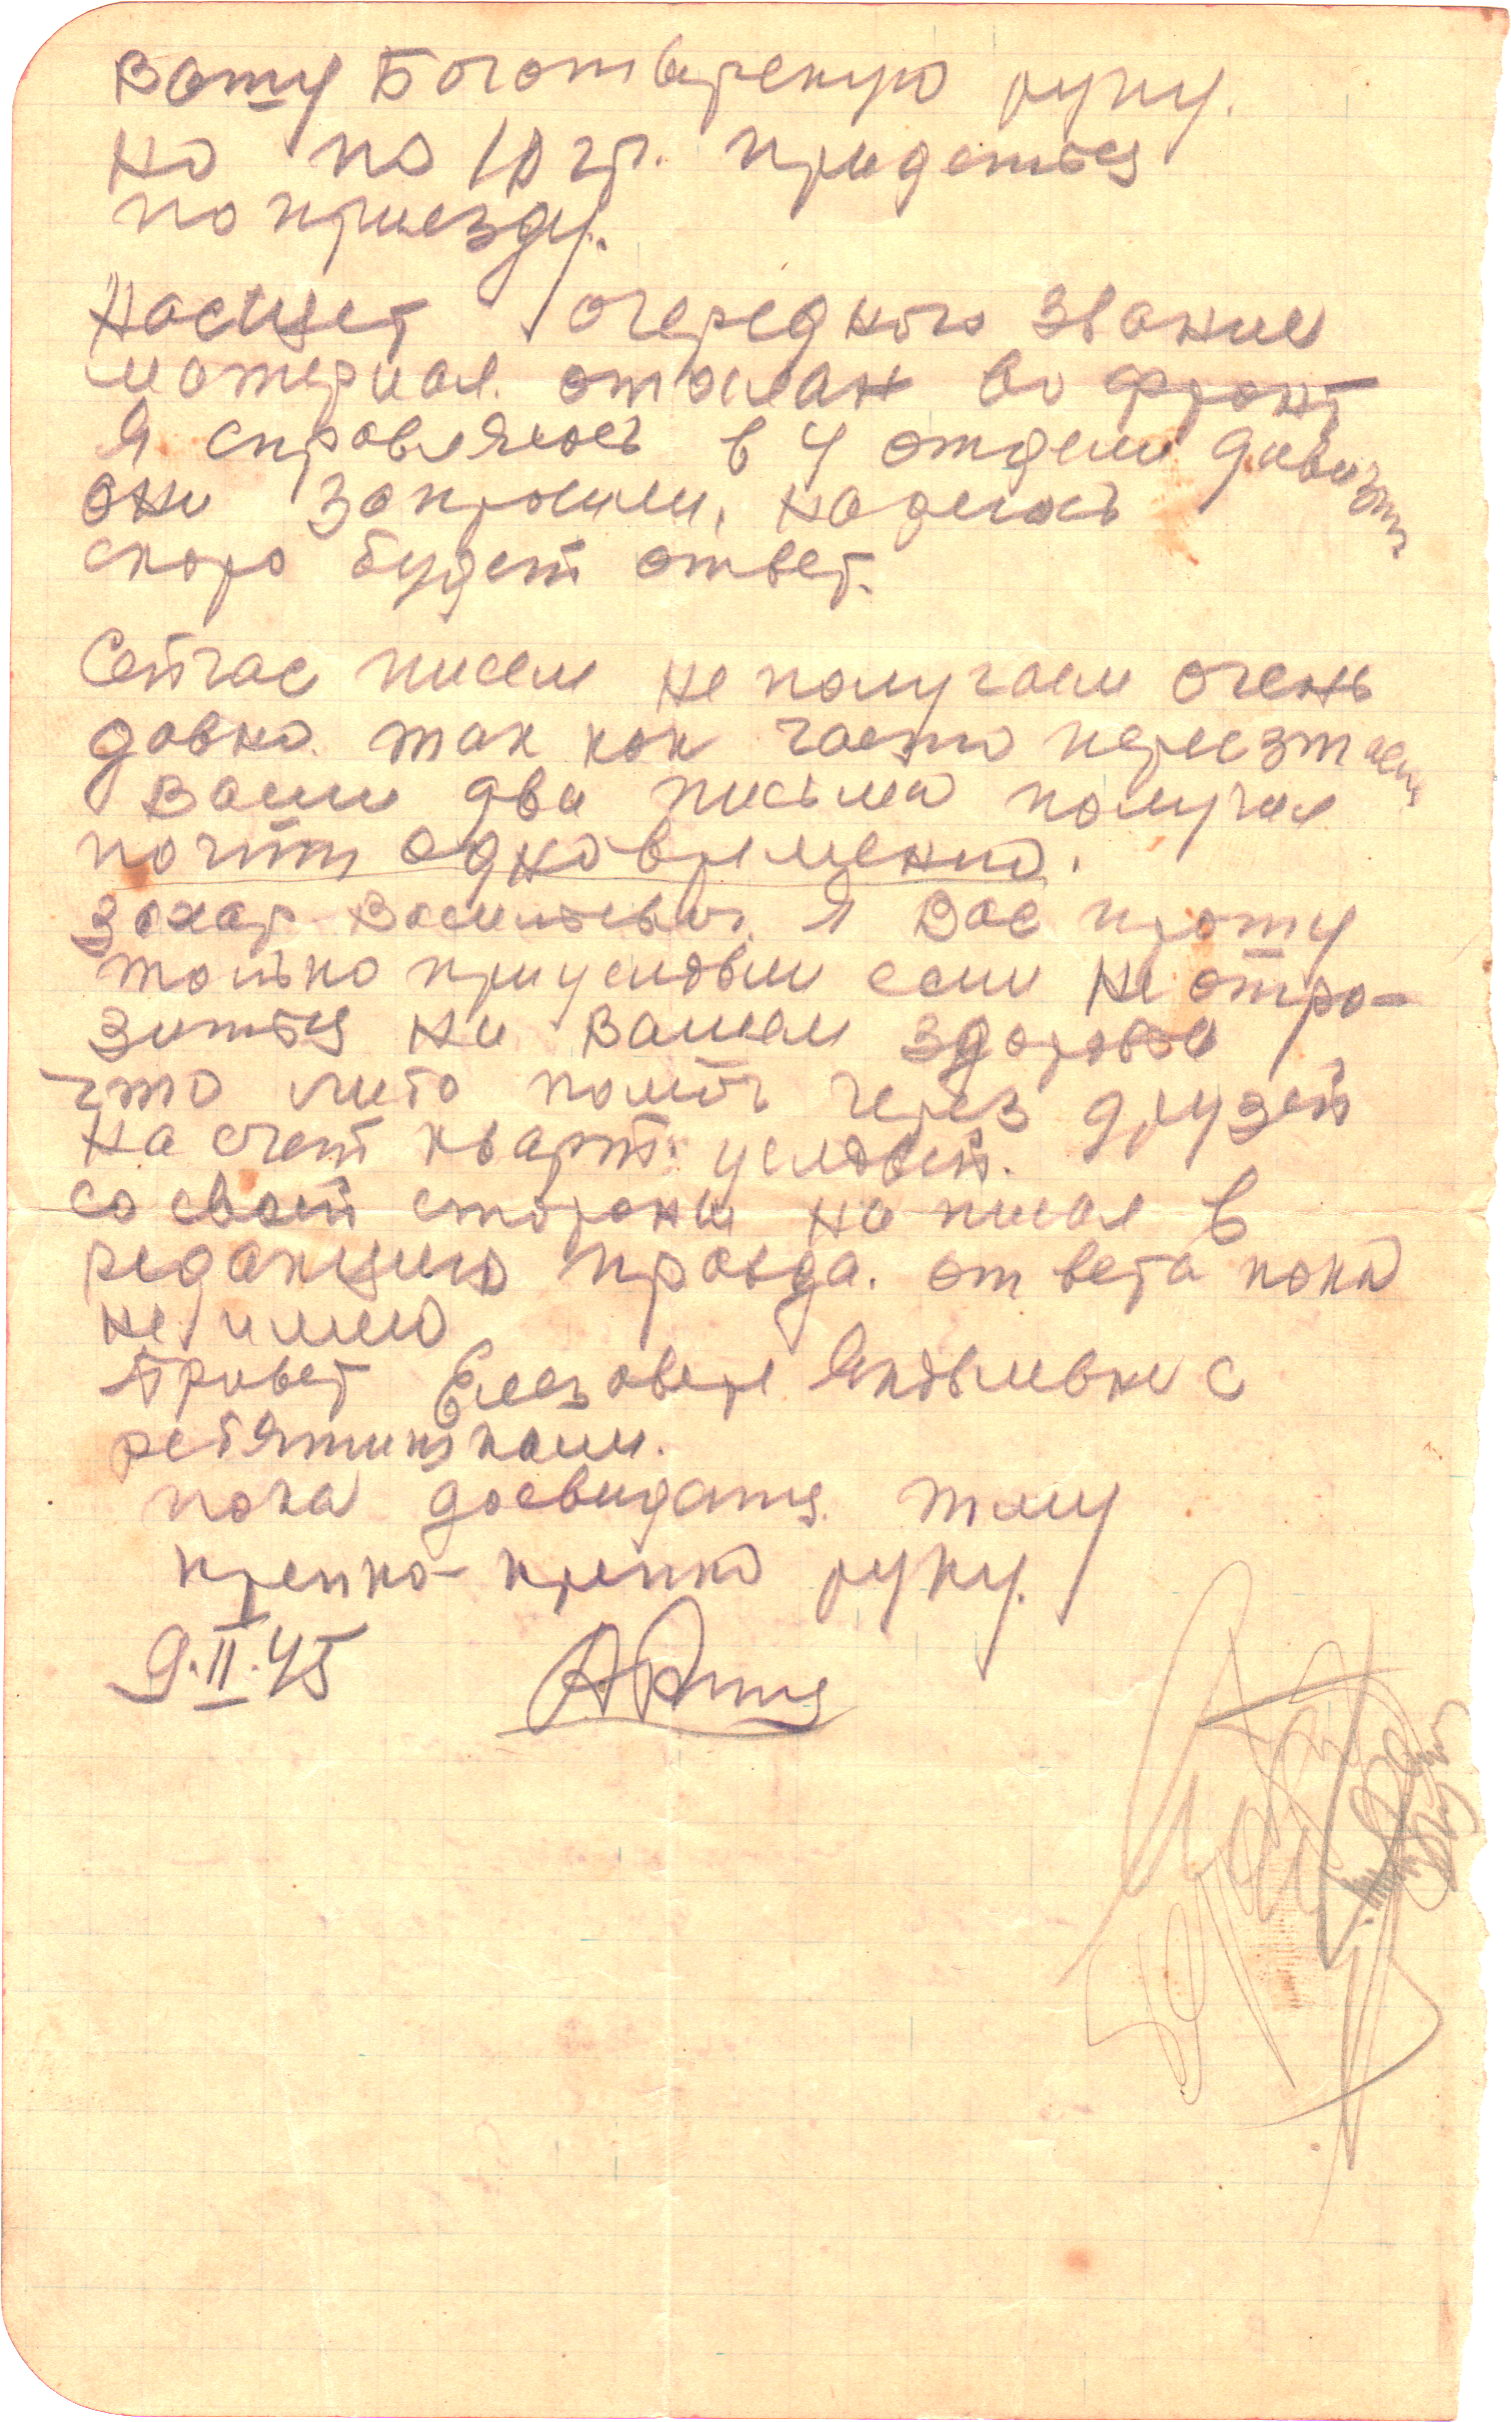 Вашу Богатырскую руку.
но по 10 гр. придеться
по приезду.
Насщет очередного звание
материал отослан во фронт
Я справлялся в 4 отделе дивизии
они запросили, надеюсь
скоро будет ответ.
Сейчас писем не получаем очень
давно. так как часто переезжаем
Ваши два письма получил
почти одновременно.
Захар Васильевич. Я Вас прошу
только приусловии если не отра-
зиться на Вашем здоровье
что либо помоч через друзей
на счет кварт. условей.
со своей стороны написал в
редакцию правда. ответа пока
не имею
Привет Елезавете Яковлевне с
ребятишками.
пока досвидания. жму
крепко-крепко руку.
9.II.45